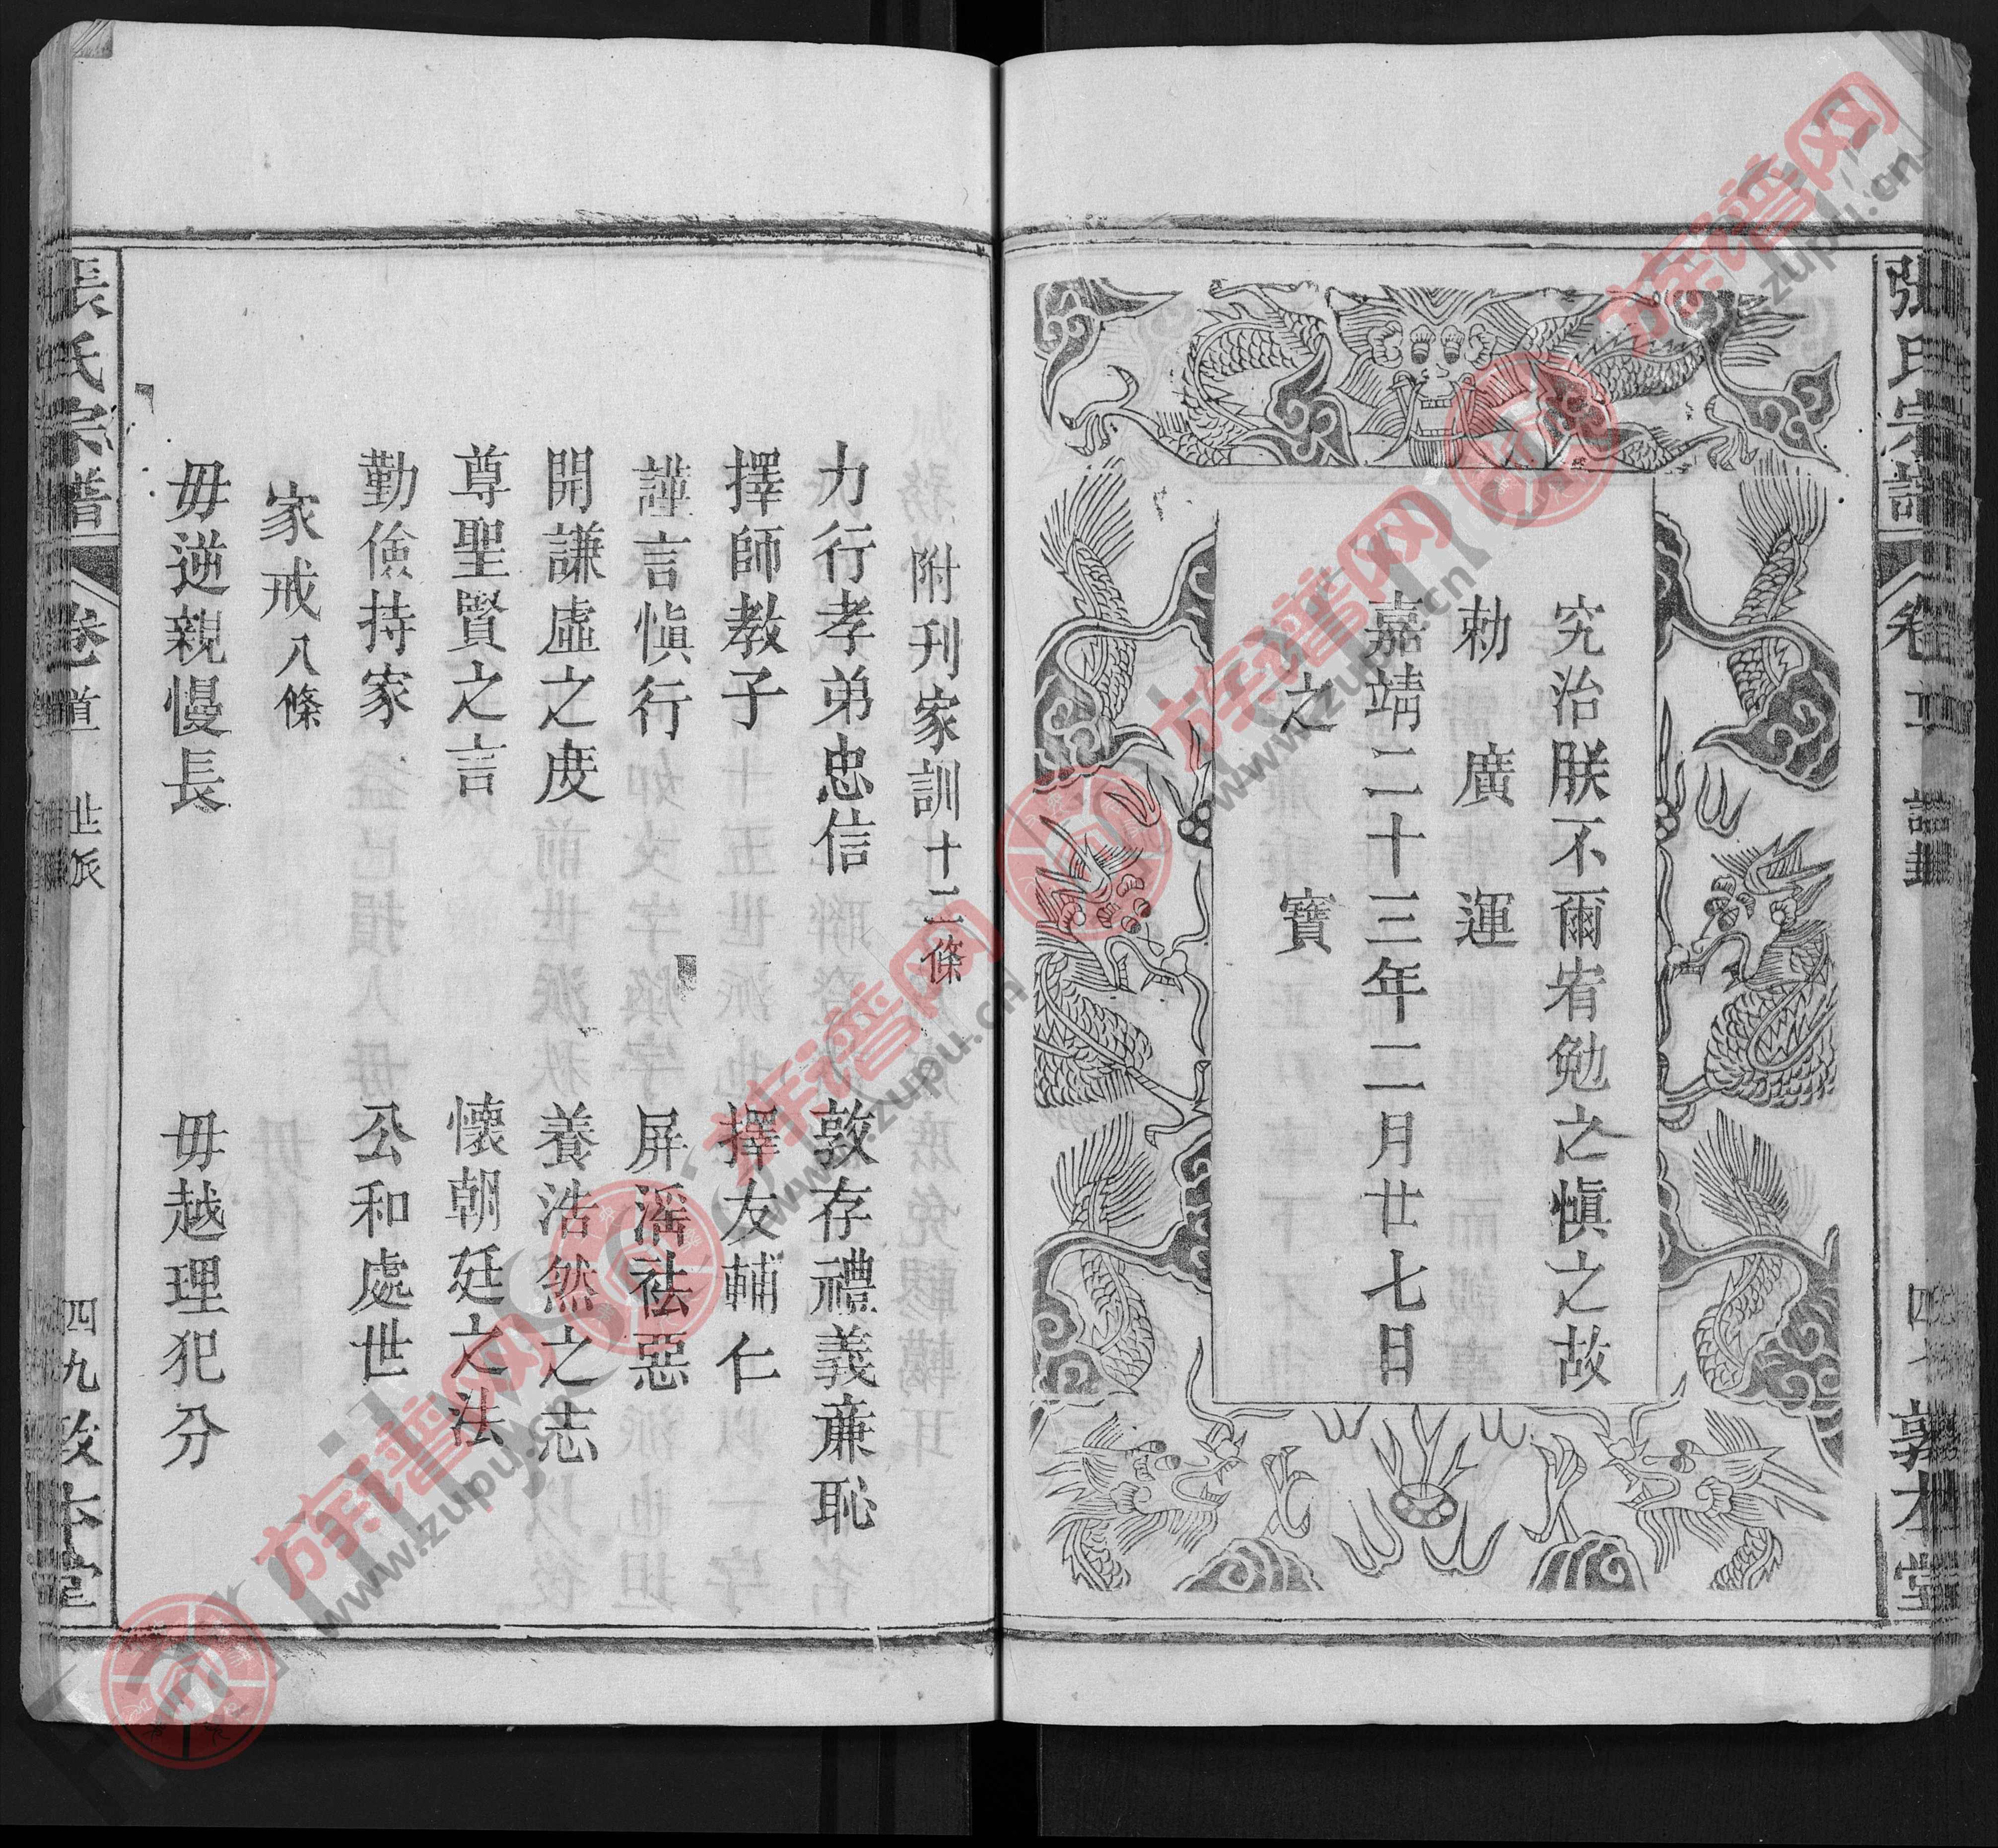 張氏宗譜 卷
敦本堂
究治朕不爾宥勉之慎之故
勅 廣 運
嘉靖二十三年二月廿七日
之 寶
附刊家訓十二條
力行孝弟忠信 敦存禮義廉恥
擇師教子 擇友輔仁
謹言慎行 屏滛祛惡
開謙虛之度 養浩然之志
尊聖賢之言 懷朝廷之法
勤儉持家 公和處世
家戒八條
毋逆親慢長 毋越理犯分
張氏宗譜 卷一 道 世派 四九 敦本堂
族谱网 www.zupu.cn